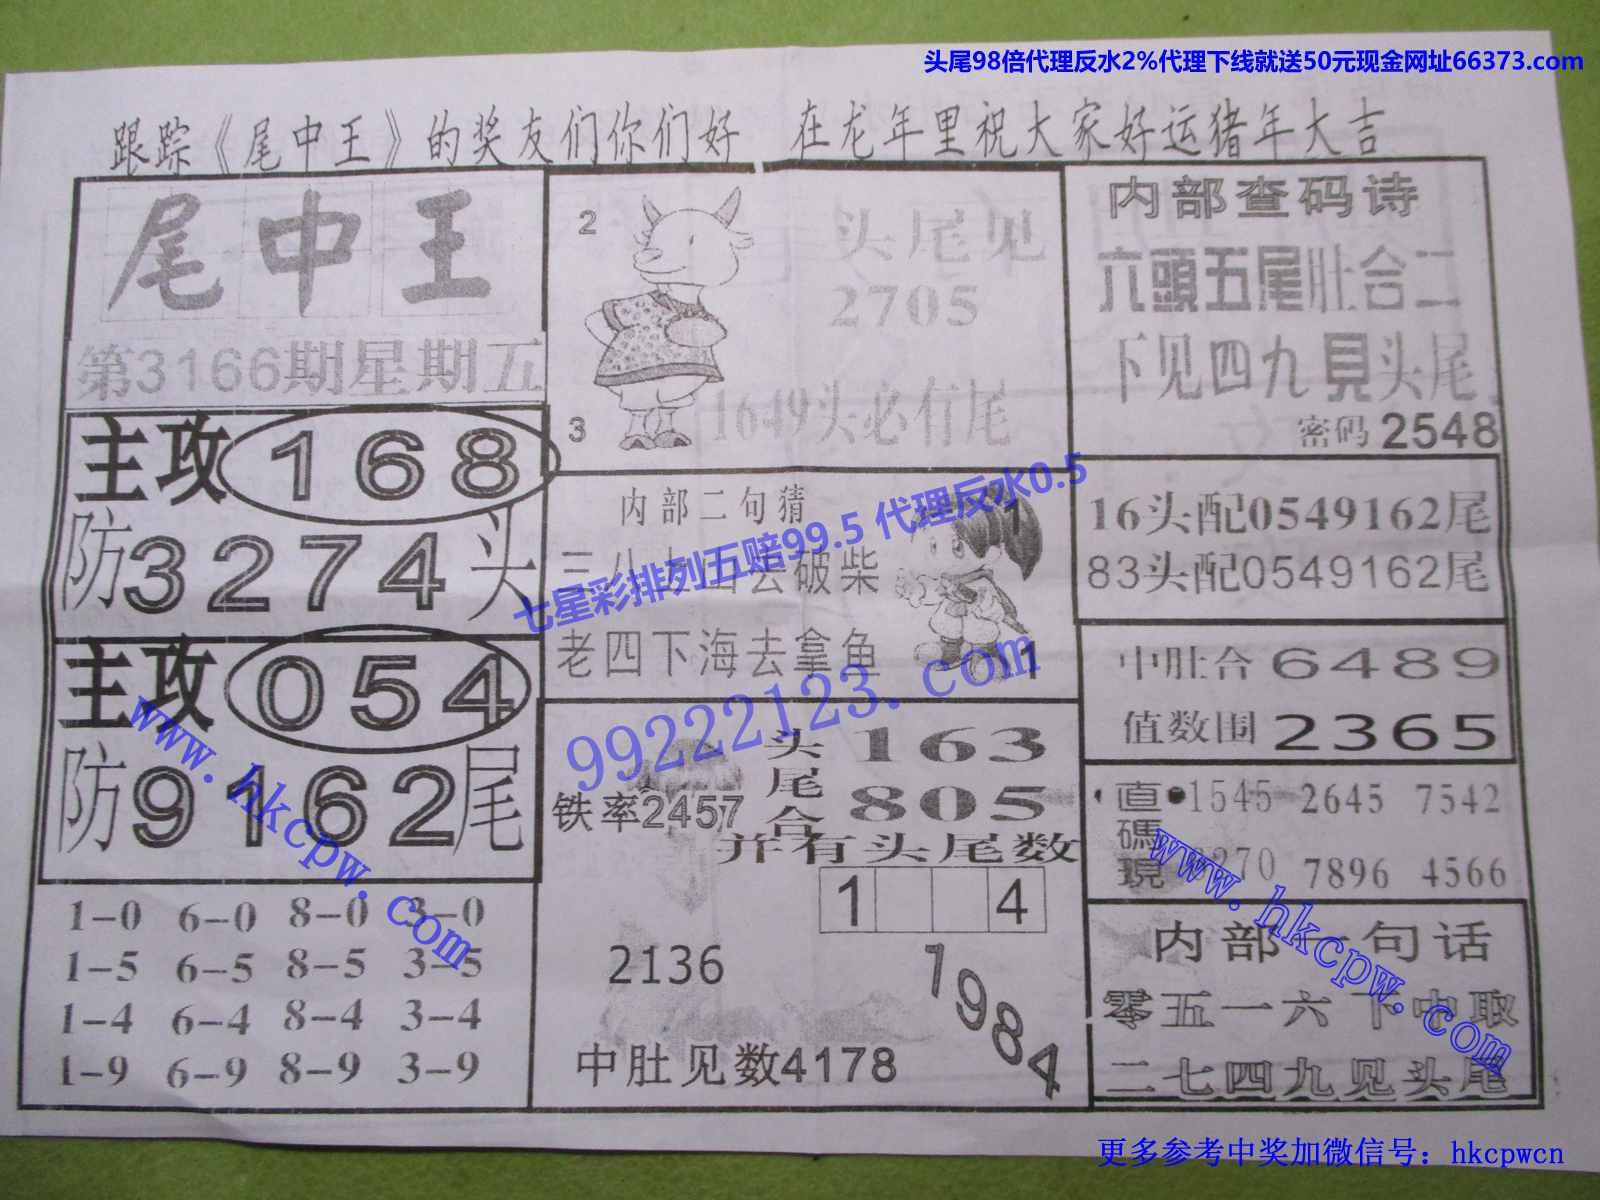 头尾98倍代理反水2%代理下线就送50元现金网址66373.com
跟踪《尾中王》的奖友们你们好 在龙年里祝大家好运猪年大吉
尾中王
第3166期星期五
主攻168
防3274头
主攻054
防9162尾
1-0 6-0 8-0 3-0
1-5 6-5 8-5 3-5
1-4 6-4 8-4 3-4
1-9 6-9 8-9 3-9
2
3
头尾见
2705
1649头必有尾
内部二句猜
三八上山去破柴
老四下海去拿鱼
1
1
七星彩排列五赔99.5 代理反水0.5
99222123.com
铁率2457
头尾合
163
805
并有头尾数
1 4
2136
1984
中肚见数4178
内部查码诗
六頭五尾肚合二
下见四九見头尾
密码2548
16头配0549162尾
83头配0549162尾
中肚合6489
值数围2365
直碼現
1545 2645 7542
270 7896 4566
内部一句话
零五一六下中取
二七四九见头尾
www.hkcpw.com
www.hkcpw.com
更多参考中奖加微信号：hkcpwcn